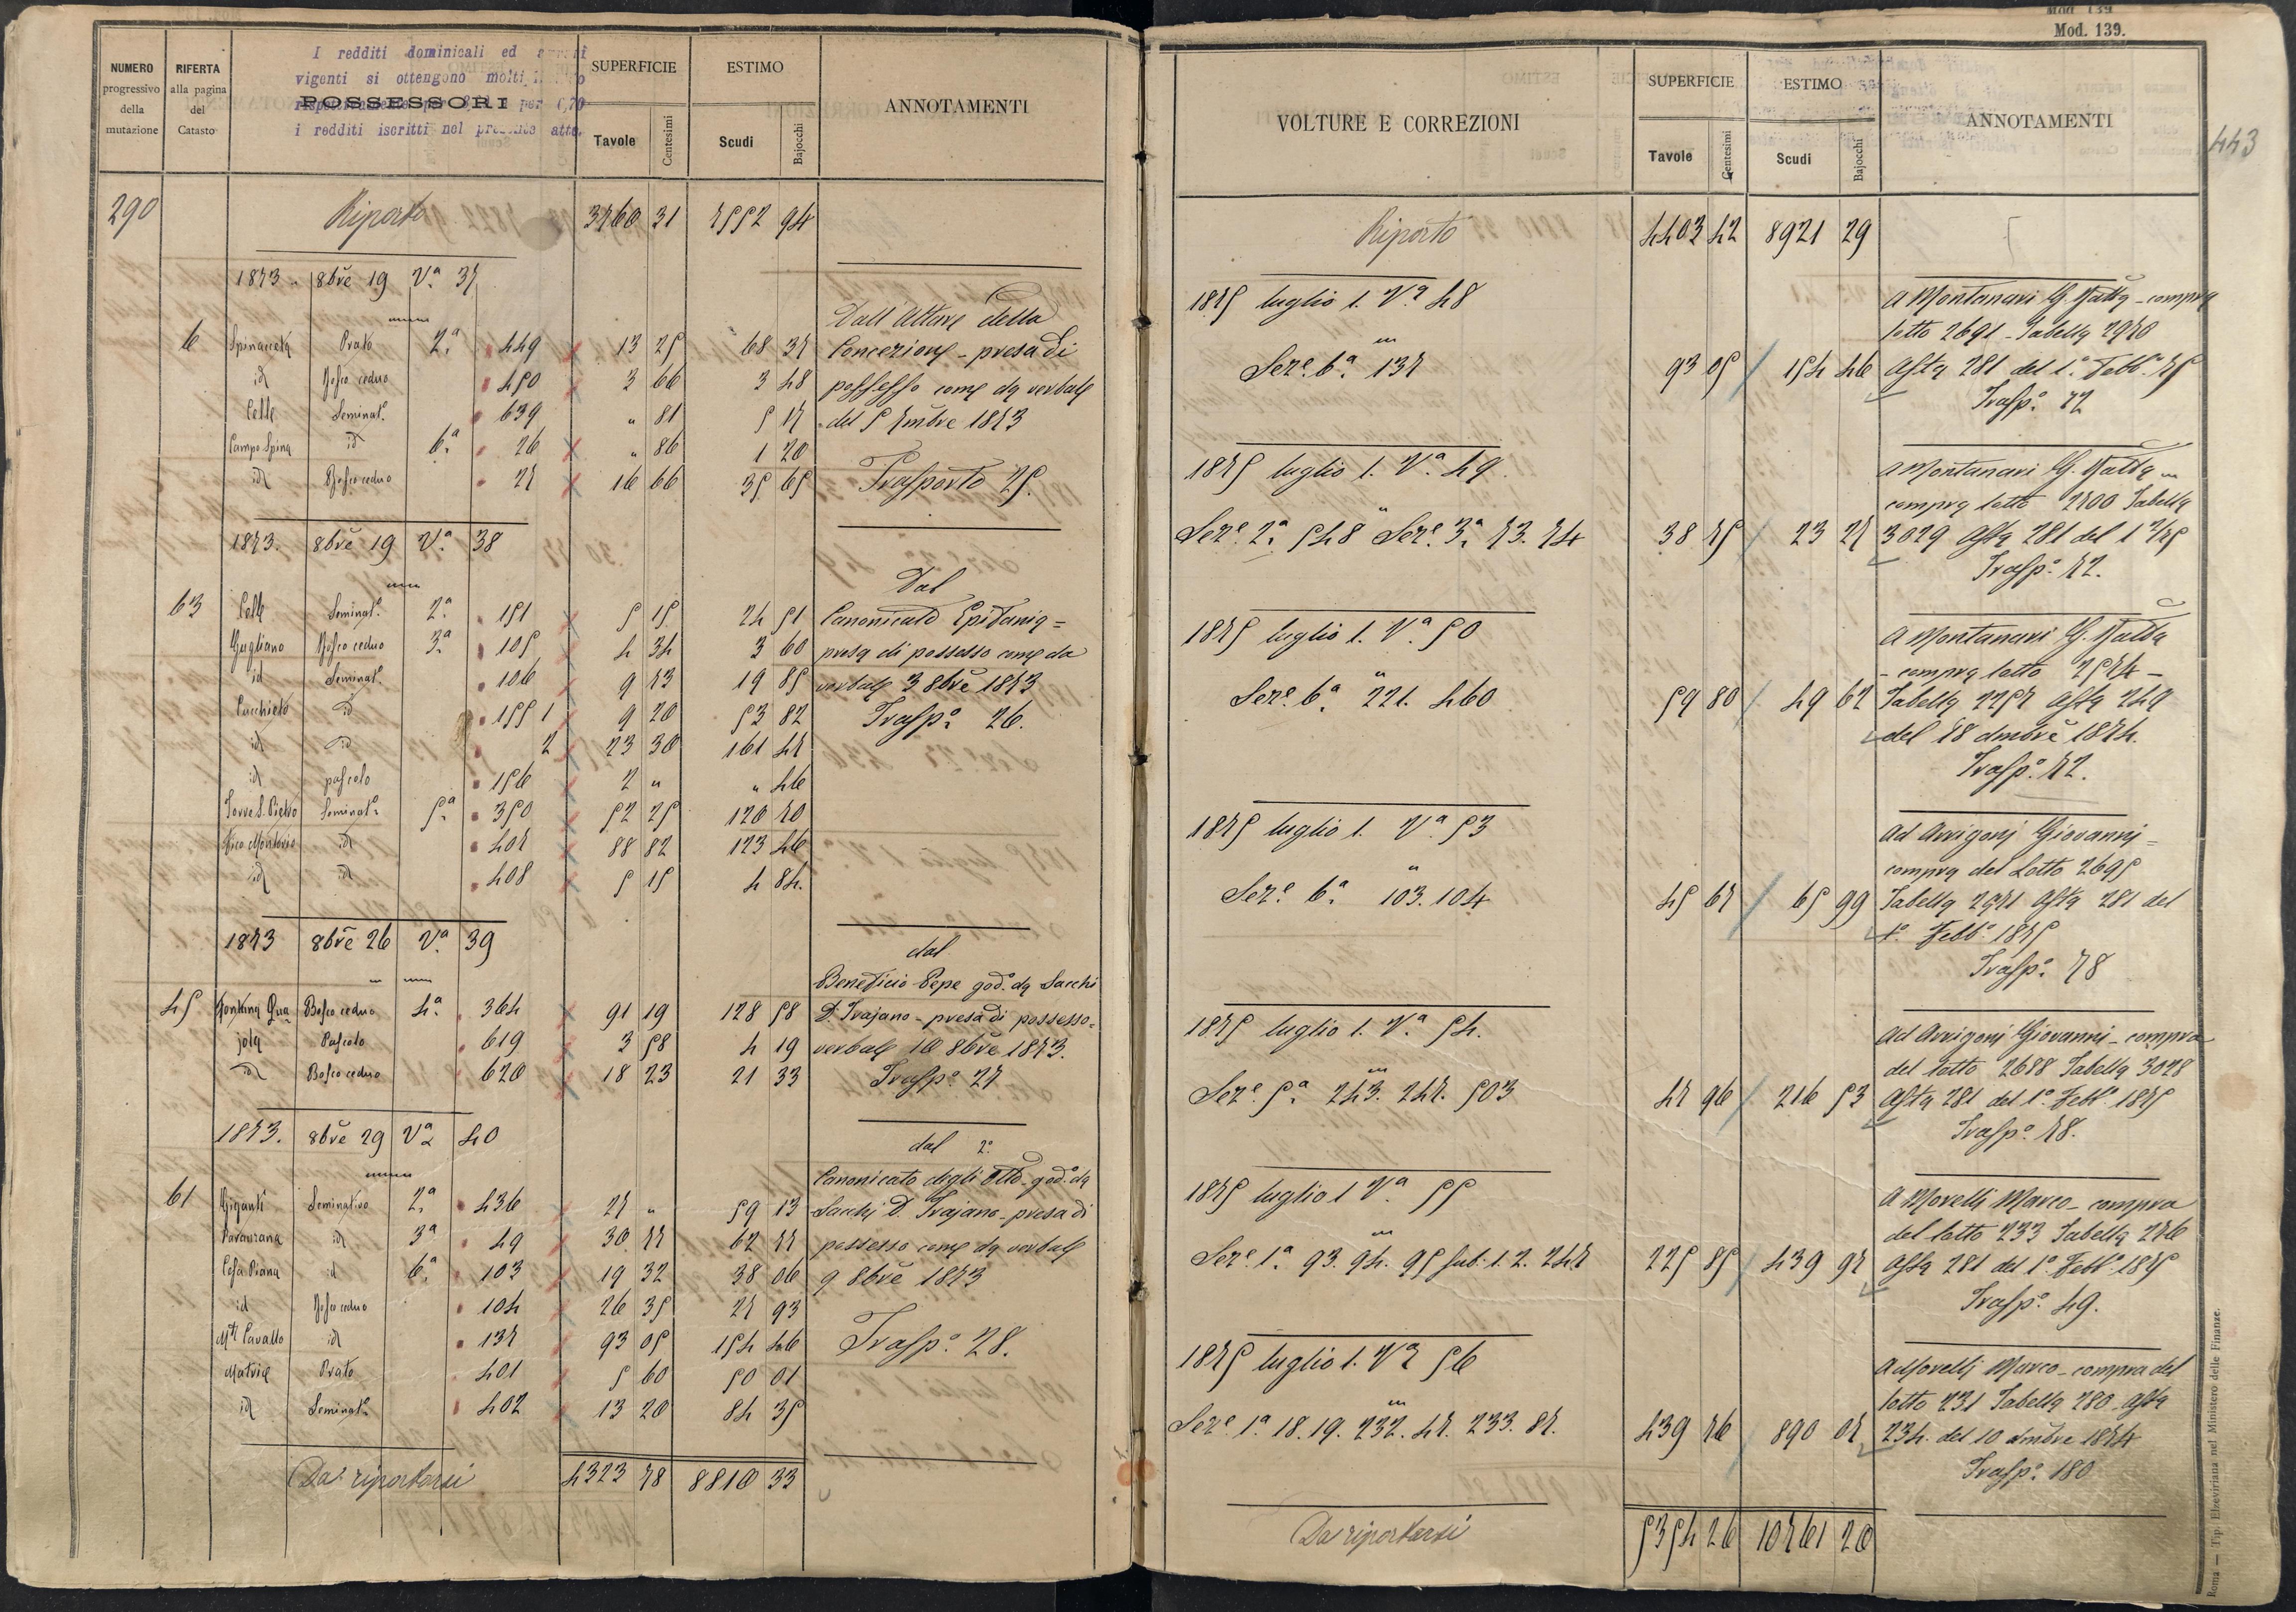 NUMERO progressivo della mutazione
RIFERTA alla pagina del Catasto
I redditi dominicali ed
vigenti si ottengono
POSSESSORI
i redditi iscritti nel presente atto.
SUPERFICIE
Tavole Centesimi
ESTIMO
Scudi Bajocchi
ANNOTAMENTI
290 Riporto 3760 31 7552 94
1873. 8bre 19 Va. 37
Dall'Altare della
6 Spinaceta Prato 2a. 449 13 25 68 37 Concezione - presa di
id Bosco ceduo 450 3 66 3 48 possesso come da verbale
Celle Seminat.o 639 " 81 5 17 del 5 7mbre 1873
Campo Spina id 6a. 26 " 86 1 20
id Bosco ceduo 27 16 66 35 65 Trasporto 25.
1873. 8bre 19 Va. 38
Dal
63 Celle Seminat.o 2a. 151 5 15 24 51 Canonicato Epifania =
Gugliano Bosco ceduo 3a 105 4 34 3 60 presa di possesso come da
id Seminat.o 106 9 73 19 85 verbale 3 8bre 1873
Cucchieto id 155 1 9 20 53 82 Traspo. 26.
id id 2 23 30 161 47
id pascolo 156 2 " " 46
Torre S. Pietro Seminat.o 5a. 350 52 25 120 70
Vico Montorio id 407 88 82 123 46
id id 408 5 15 4 84.
1873 8bre 26 Va. 39
dal
Beneficio Pepe god. da Sacchi
45 Fontana Qua= Bosco ceduo 4a. 364 91 19 128 58 D. Trajano - presa di possesso=
jola Pascolo 619 3 58 4 19 verbale 10 8bre 1873.
id Bosco ceduo 620 18 23 21 33 Traspo. 27
1873. 8bre 29 Va 40
dal 2o
Canonicato degli Otto - god. da
61 Giganti Seminativo 2a. 436 27 " 59 13 Sacchi D. Trajano - presa di
Varanzana id 3a 49 30 77 62 77 possesso come da verbale
Cesa Piana id 6a. 103 19 32 38 06 9 8bre 1873
id Bosco ceduo 104 26 35 27 93
Mte Cavallo id 137 93 05 154 46 Traspo. 28.
Matrice Prato 401 5 60 50 01
id Seminat.o 402 13 20 84 35
Da riportarsi 4323 78 8810 33
Mod. 139.
443
VOLTURE E CORREZIONI
SUPERFICIE
Tavole Centesimi
ESTIMO
Scudi Bajocchi
ANNOTAMENTI
Riporto 4403 42 8921 29
1875 luglio 1. Va 48
a Montanari G. Batta - compra
lotto 2691 - Tabella 2970
Seze. 6a. 137 93 05 154 46 Asta 281 del 1o. Febbo. 75
Traspo. 72
1875 luglio 1. Va. 49
a Montanari G. Batta
compra lotto 2700 Tabella
Seze. 2a. 548 Seze. 3a. 73. 74 38 75 23 27 3029 Asta 281 del 1 2/75
Traspo. 72.
1875 luglio 1. Va. 50
a Montanari G. Batta
- compra lotto 2574 -
Seze. 6a. 221. 460 59 80 49 62 Tabella 2257 Asta 249
del 18 dmbre 1874.
Traspo. 72.
1875 luglio 1. Va. 53
ad Arrigoni Giovanni =
compra del Lotto 2695
Seze. 6a. 103. 104 45 67 65 99 Tabella 2971 Asta 281 del
1o. Febbo. 1875
Traspo. 78
1875 luglio 1. Va. 54.
ad Arrigoni Giovanni - compra
del lotto 2688 Tabella 3028
Seze. 5a. 243. 247. 503 47 96 216 53 Asta 281 del 1o. Febbo. 1875
Traspo. 78.
1875 luglio 1 Va. 55
a Morelli Marco - compra
del lotto 233 Tabella 276
Seze. 1a. 93. 94. 95 sub. 1. 2. 247 225 85 439 97 Asta 281 del 1o. Febbo. 1875
Traspo. 49.
1875 luglio 1. Va 56
a Morelli Marco - compra del
lotto 231 Tabella 280 - Asta
Seze. 1a. 18. 19. 232. 47. 233. 87. 439 76 890 07 234. del 10 dmbre 1874
Traspo. 180
Da riportarsi 5354 26 10761 20
Roma — Tip. Elzeviriana nel Ministero delle Finanze.